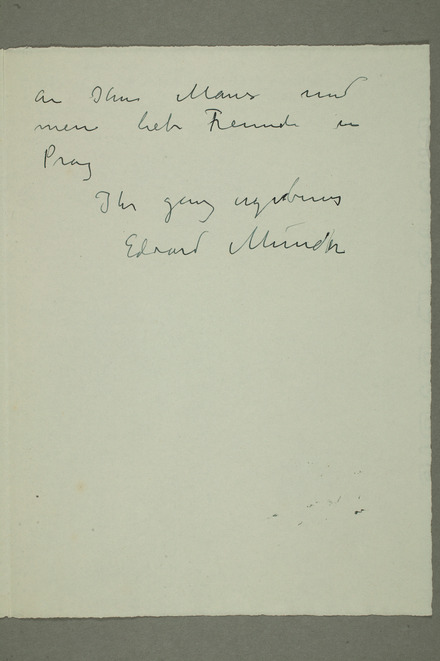 an Ihre Manes und
mein liebe Freunde in
Prag
Ihr ganz ergebenes
Edvard Munch